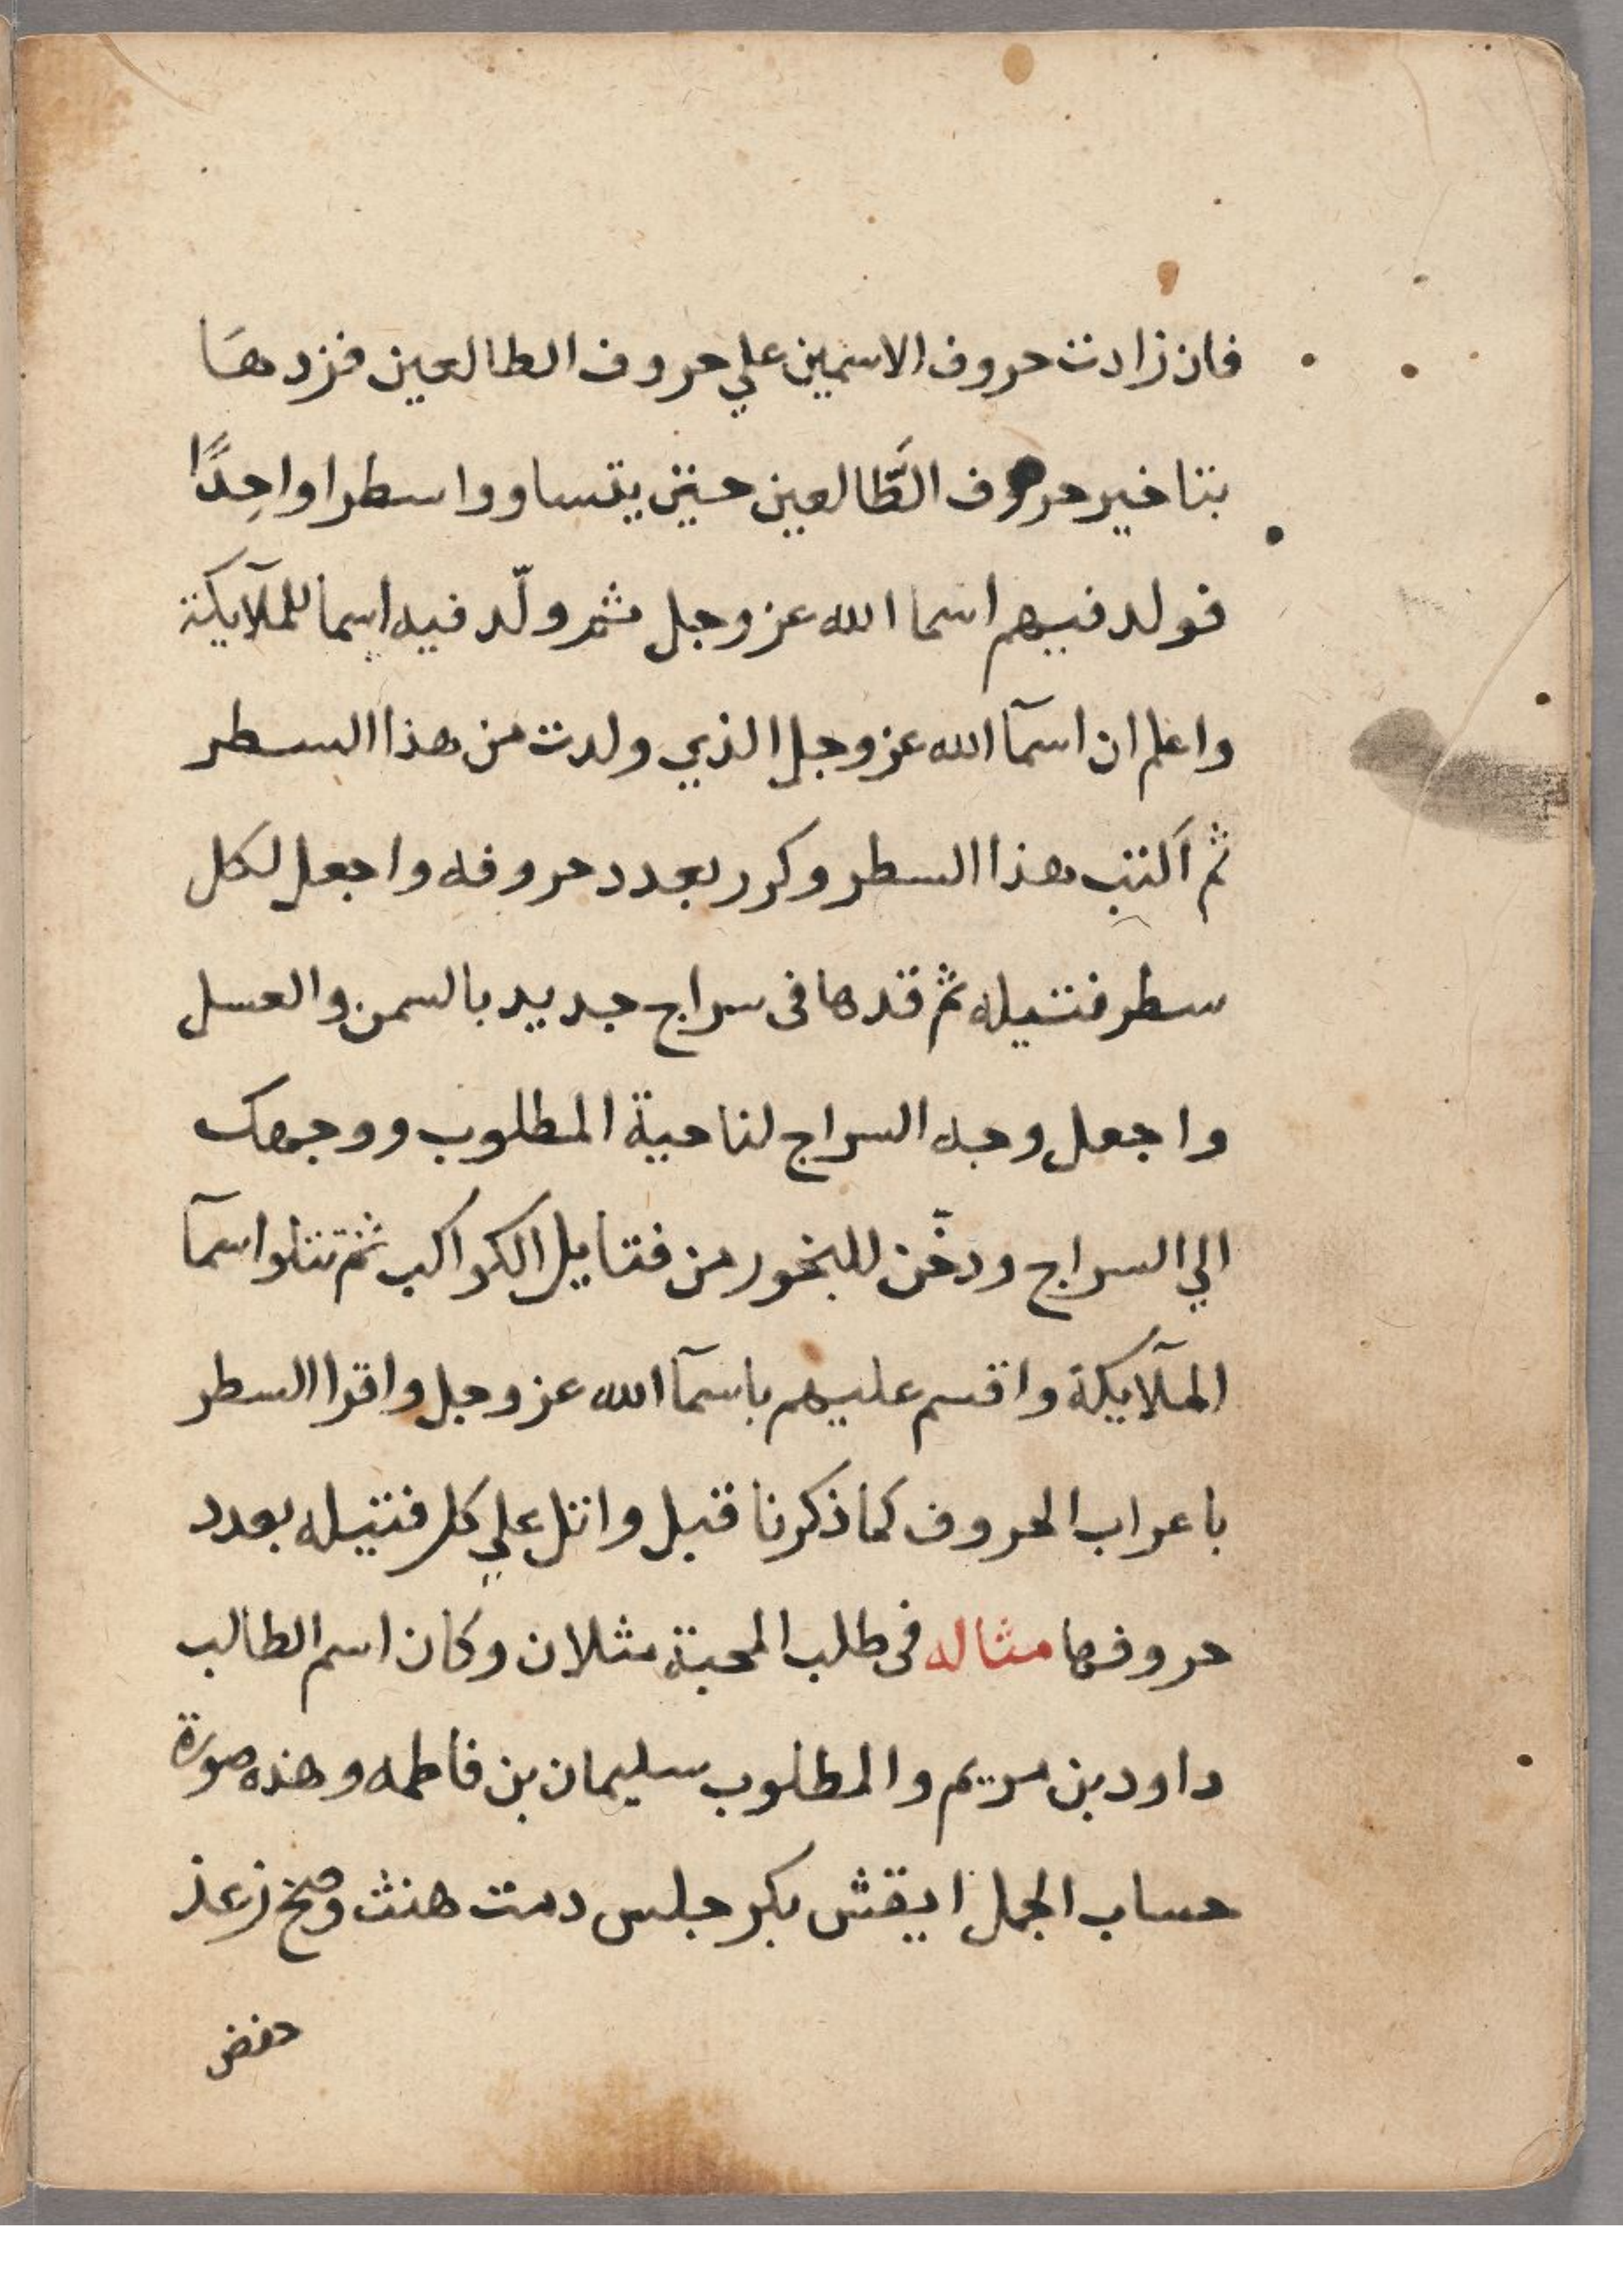 فان زادت حروف الاسمين علي حروف الطالعين فزدهَا
بتاخير حروف الطَّالعين حتيٰ يتساووا سطرا واحِدًا
فولد فيهم اسما الله عز وجل ثم ولّد فيه اسما للملآيكة
واعلم ان اسمآ الله عز وجل الذي ولدت من هذا السطر
ثم اكتب هذا السطر وكرر بعدد حروفه واجعل لكل
سطر فتيله ثم قدها فى سراج جديد بالسمن والعسل
واجعل وجه السراج لناحية المطلوب ووجهك
الي السراج ودخّن للبخور من فتايل الكواكب ثم تتلوا اسمآ
الملآيكة واقسم عليهم باسمآ الله عز وجل واقرا السطر
باعراب الحروف كما ذكرنا قبل واتل علي كل فتيله بعدد
حروفها مثاله فى طلب المحبة مثلا ان وكان اسم الطالب
داود بن مريم والمطلوب سليمان بن فاطمه وهذه صورة
حساب الجمل ايقش بكر جلس دمت هنث وصخ زعذ
حفض